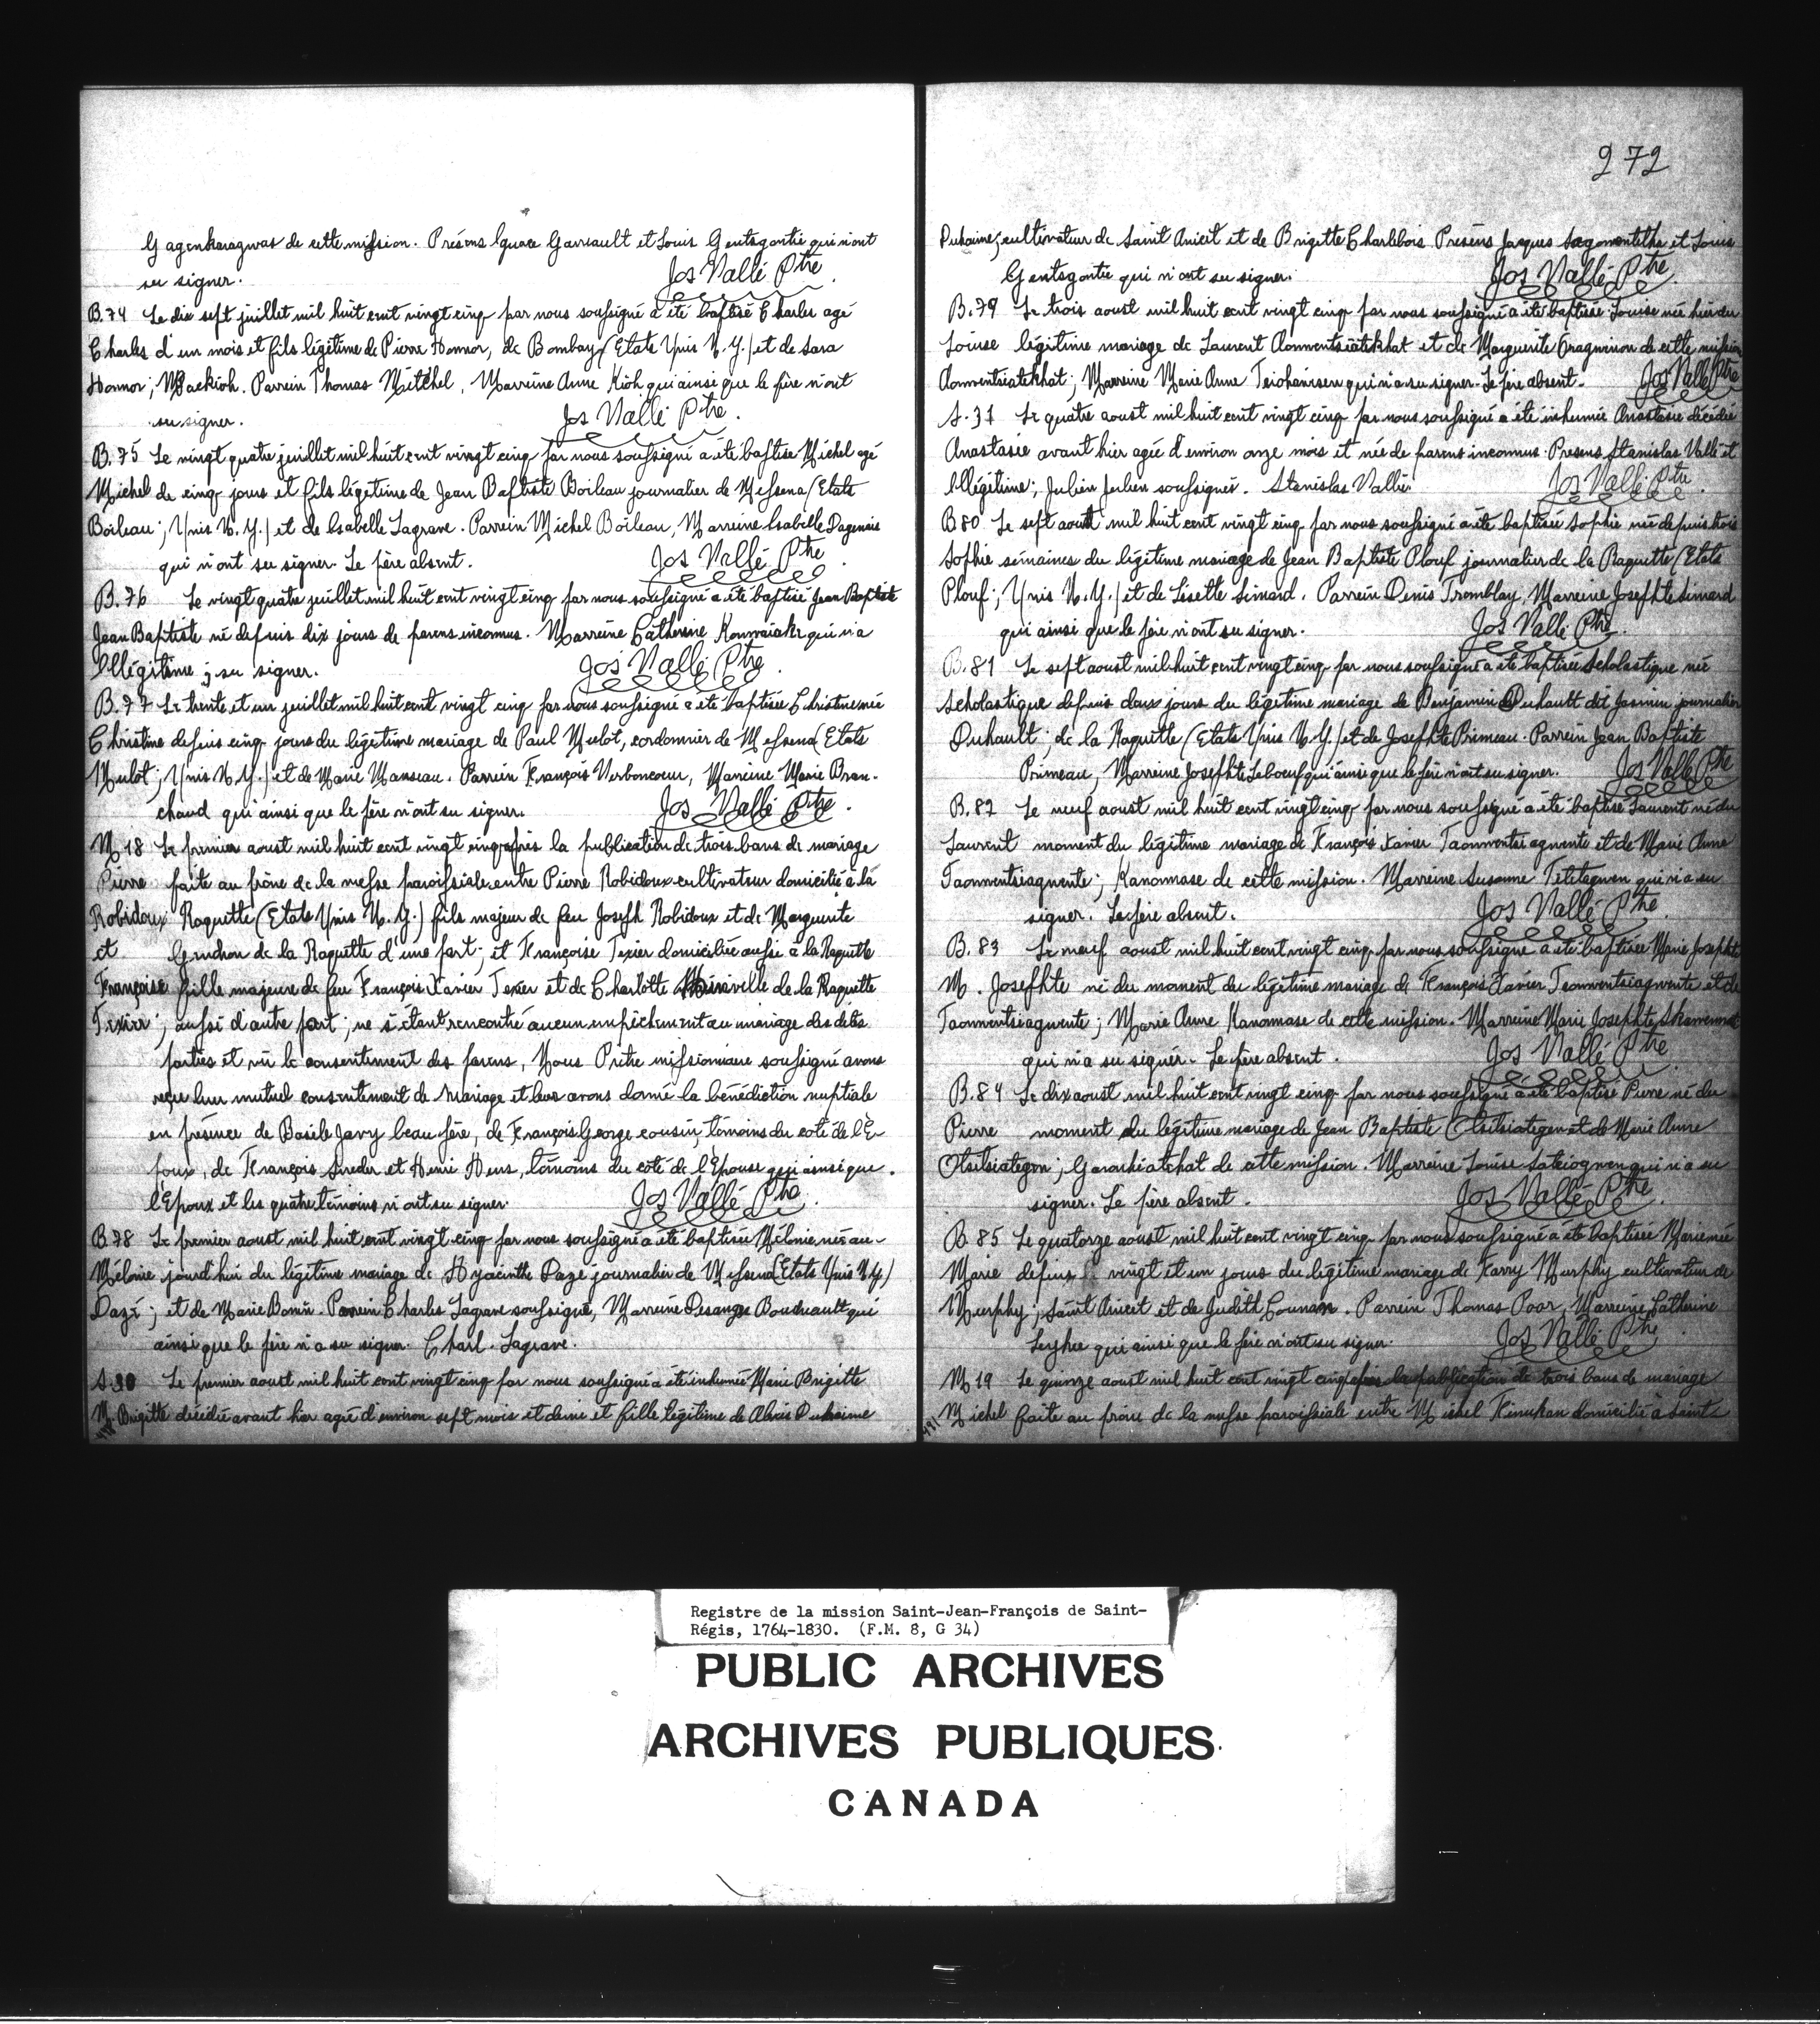 Gagenharagwas de cette mission. Présens Ignace Garsault et Louis Gentagontie qui n'ont
su signer. Jos Vallé Ptre
B. 74 Le dix sept juillet mil huit cent vingt cinq par nous soussigné a été baptisé Charles agé
Charles d'un mois et fils légitime de Pierre Honnor, de Bombay (Etats Unis N.Y.) et de Sara
Honnor; Mackioh. Parrein Thomas Mitchel, Marreine Anne Kioh qui ainsi que le père n'ont
su signer. Jos Vallé Ptre.
B. 75 Le vingt quatre juillet mil huit cent vingt cinq par nous soussigné a été baptisé Michel agé
Michel de cinq jours et fils légitime de Jean Baptiste Boileau journalier de Messena (Etats
Boileau; Unis N.Y.) et de Isabelle Lagrave. Parrein Michel Boileau, Marreine Isabelle Dagenais
qui n'ont su signer. Le père absent. Jos Vallé Ptre.
B. 76 Le vingt quatre juillet mil huit cent vingt cinq par nous soussigné a été baptisé Jean Baptiste
Jean Baptiste né depuis dix jours de parens inconnus. Marreine Catherine qui n'a
Illégitime; su signer. Jos Vallé Ptre.
B. 77 Le trente et un juillet mil huit cent vingt cinq par nous soussigné a été baptisée Christine née
Christine depuis cinq jours du légitime mariage de Paul Mulot, cordonnier de Messena (Etats
Mulot; Unis N.Y.) et de Marie Manseau. Parrein François Verboncoeur, Marreine Marie Bran-
chaud qui ainsi que le père n'ont su signer. Jos Vallé Ptre.
M 18 Le premier aoust mil huit cent vingt cinq après la publication de trois bans de mariage
Pierre faite au prône de la messe paroissiale entre Pierre Robidoux cultivateur domicilié à la
Robidoux Raquette (Etats Unis N.Y.) fils majeur de feu Joseph Robidoux et de Marguerite
et Guidron de la Raquette d'une part; et Françoise Texier domiciliée aussi à la Raquette
Françoise fille majeure de feu François Xavier Texier et de Charlotte Miraville de la Raquette
Texier; aussi d'autre part; ne s'étant rencontré aucun empêchement au mariage des dites
parties et vû le consentement des parens, Nous Prêtre missionnaire soussigné avons
reçu leur mutuel consentement de Mariage et leur avons donné la bénédiction nuptiale
en présence de Basile Javy beau père, de François George cousin, témoins du coté de l'E-
poux, de François Sureder et Henri Hens, témoins du côté de l'Epouse qui ainsi que
l'Epoux et les quatre témoins n'ont su signer. Jos Vallé Ptre.
B. 78 Le premier aoust mil huit cent vingt cinq par nous soussigné a été baptisée Mélonie, née au-
Mélonie jourd'hui du légitime mariage de Hyacinthe Dazé journalier de Messena (Etats Unis N.Y.)
Dazé; et de Marie Bonin. Parrein Charles Lagrave soussigné, Marreine Desange Boudreault qui
ainsi que le père n'a su signer. Charl. Lagrave.
S. 30 Le premier aoust mil huit cent vingt cinq par nous soussigné a été inhumée Marie Brigitte
M. Brigitte décédée avant hier agée d'environ sept mois et demi et fille légitime de Alexis Duhaime
272
Duhaime; cultivateur de Saint Anicet et de Brigitte Charlebois. Présens Jacques Sagomentetha et Louis
Gentagontie qui n'ont su signer. Jos Vallé Ptre.
B. 79 Le trois aoust mil huit cent vingt cinq par nous soussigné a été baptisée Louise née hier du
Louise légitime mariage de Laurent Aonwentsiatekhat et de Marguerite Oragwinon de cette mission
Aonwentsiatekhat; Marreine Marie Anne Teiohansen qui n'a su signer. Le père absent. Jos Vallé Ptre
S. 31 Le quatre aoust mil huit cent vingt cinq par nous soussigné a été inhumée Anastasie décédée
Anastasie avant hier agée d'environ onze mois et née de parens inconnus. Presens Stanislas Vallé et
Illégitime; Julien Julien soussignés. Stanislas Vallé. Jos Vallé Ptre.
B 80 Le sept aoust mil huit cent vingt cinq par nous soussigné a été baptisée Sophie née depuis trois
Sophie sémaines du légitime mariage de Jean Baptiste Plouf journalier de la Raquette (Etats
Plouf; Unis N.Y.) et de Lisette Simard. Parrein Denis Tremblay, Marreine Josephte Simard
qui ainsi que le père n'ont su signer. Jos Vallé Ptre.
B. 81 Le sept aoust mil huit cent vingt cinq par nous soussigné a été baptisée Scholastique née
Scholastique depuis deux jours du légitime mariage de Benjamin Duhault dit Jasmin journalier
Duhault; de la Raquette (Etats Unis N.Y.) et de Josephte Primeau. Parrein Jean Baptiste
Primeau, Marreine Josephte Leboeuf qui ainsi que le père n'ont su signer. Jos Vallé Ptre
B. 82 Le neuf aoust mil huit cent vingt cinq par nous soussigné a été baptisé Laurent né du
Laurent moment du légitime mariage de François Xavier Taonwentsiagwente et de Marie Anne
Taonwentsiagwente; Kanomase de cette mission. Marreine Susanne Tetetagwen qui n'a su
signer. Le père absent. Jos Vallé Ptre.
B. 83 Le neuf aoust mil huit cent vingt cinq par nous soussigné a été baptisée Marie Josephte
M. Josephte né du moment du légitime mariage de François Xavier Taonwentsiagwente et de
Taonwentsiagwente; Marie Anne Kanomase de cette mission. Marreine Marie Josephte
qui n'a su signer. Le père absent. Jos Vallé Ptre.
B. 84 Le dix aoust mil huit cent vingt cinq par nous soussigné a été baptisé Pierre né du
Pierre moment du légitime mariage de Jean Baptiste Otsitsiategen et de Marie Anne
Otsitsiategen; Garonhiatchat de cette mission. Marreine Louise Sateiogwen qui n'a su
signer. Le père absent. Jos Vallé Ptre.
B. 85 Le quatorze aoust mil huit cent vingt cinq par nous soussigné a été baptisée Marie née
Marie depuis vingt et un jours du légitime mariage de Harry Murphy cultivateur de
Murphy; Saint Anicet et de Judith Counan. Parrein Thomas Poor, Marreine Catherine
Leyhee qui ainsi que le père n'ont su signer. Jos Vallé Ptre
M 19 Le quinze aoust mil huit cent vingt cinq après la publication de trois bans de mariage
Michel faite au prône de la messe paroissiale entre Michel Kinukan domicilié à Saint
Registre de la mission Saint-Jean-François de Saint-
Régis, 1764-1830. (F.M. 8, G 34)
PUBLIC ARCHIVES
ARCHIVES PUBLIQUES
CANADA